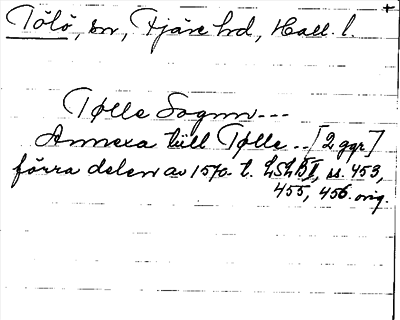 Tölö, sn, Fjäre hd, Hall. l. +
Tølle Sognn---
Annexa till Tølle..[2 ggr]
förra delen av 1570-t. LSLB II, ss. 453,
455, 456. orig.